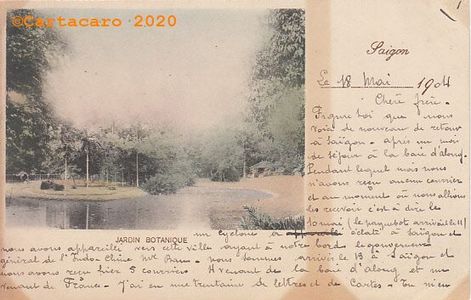 ©Cartacaro 2020
1
Saigon
Le 18 Mai 1904
Cher frère.
Figure toi que nous
voici de nouveau de retour
à Saïgon. après un mois
de séjour à la baie d'along.
Pendant lequel mois nous
n'avons reçu aucun courrier
et au moment où nous allions
les recevoir c'est à dire le
10 mai (le paquebot arrivait le 11)
un cyclone a éclaté à Saïgon et
JARDIN BOTANIQUE
nous avons appareillés vers cette ville ayant à notre bord le gouverneur
général de l'Indo Chine Mr Beau. nous sommes arrivés le 13 à Saïgon et
nous avons reçu hier 5 courriers venant de la baie d'along et un
venant de France. J'ai eu une trentaine de lettres et de Cartes.